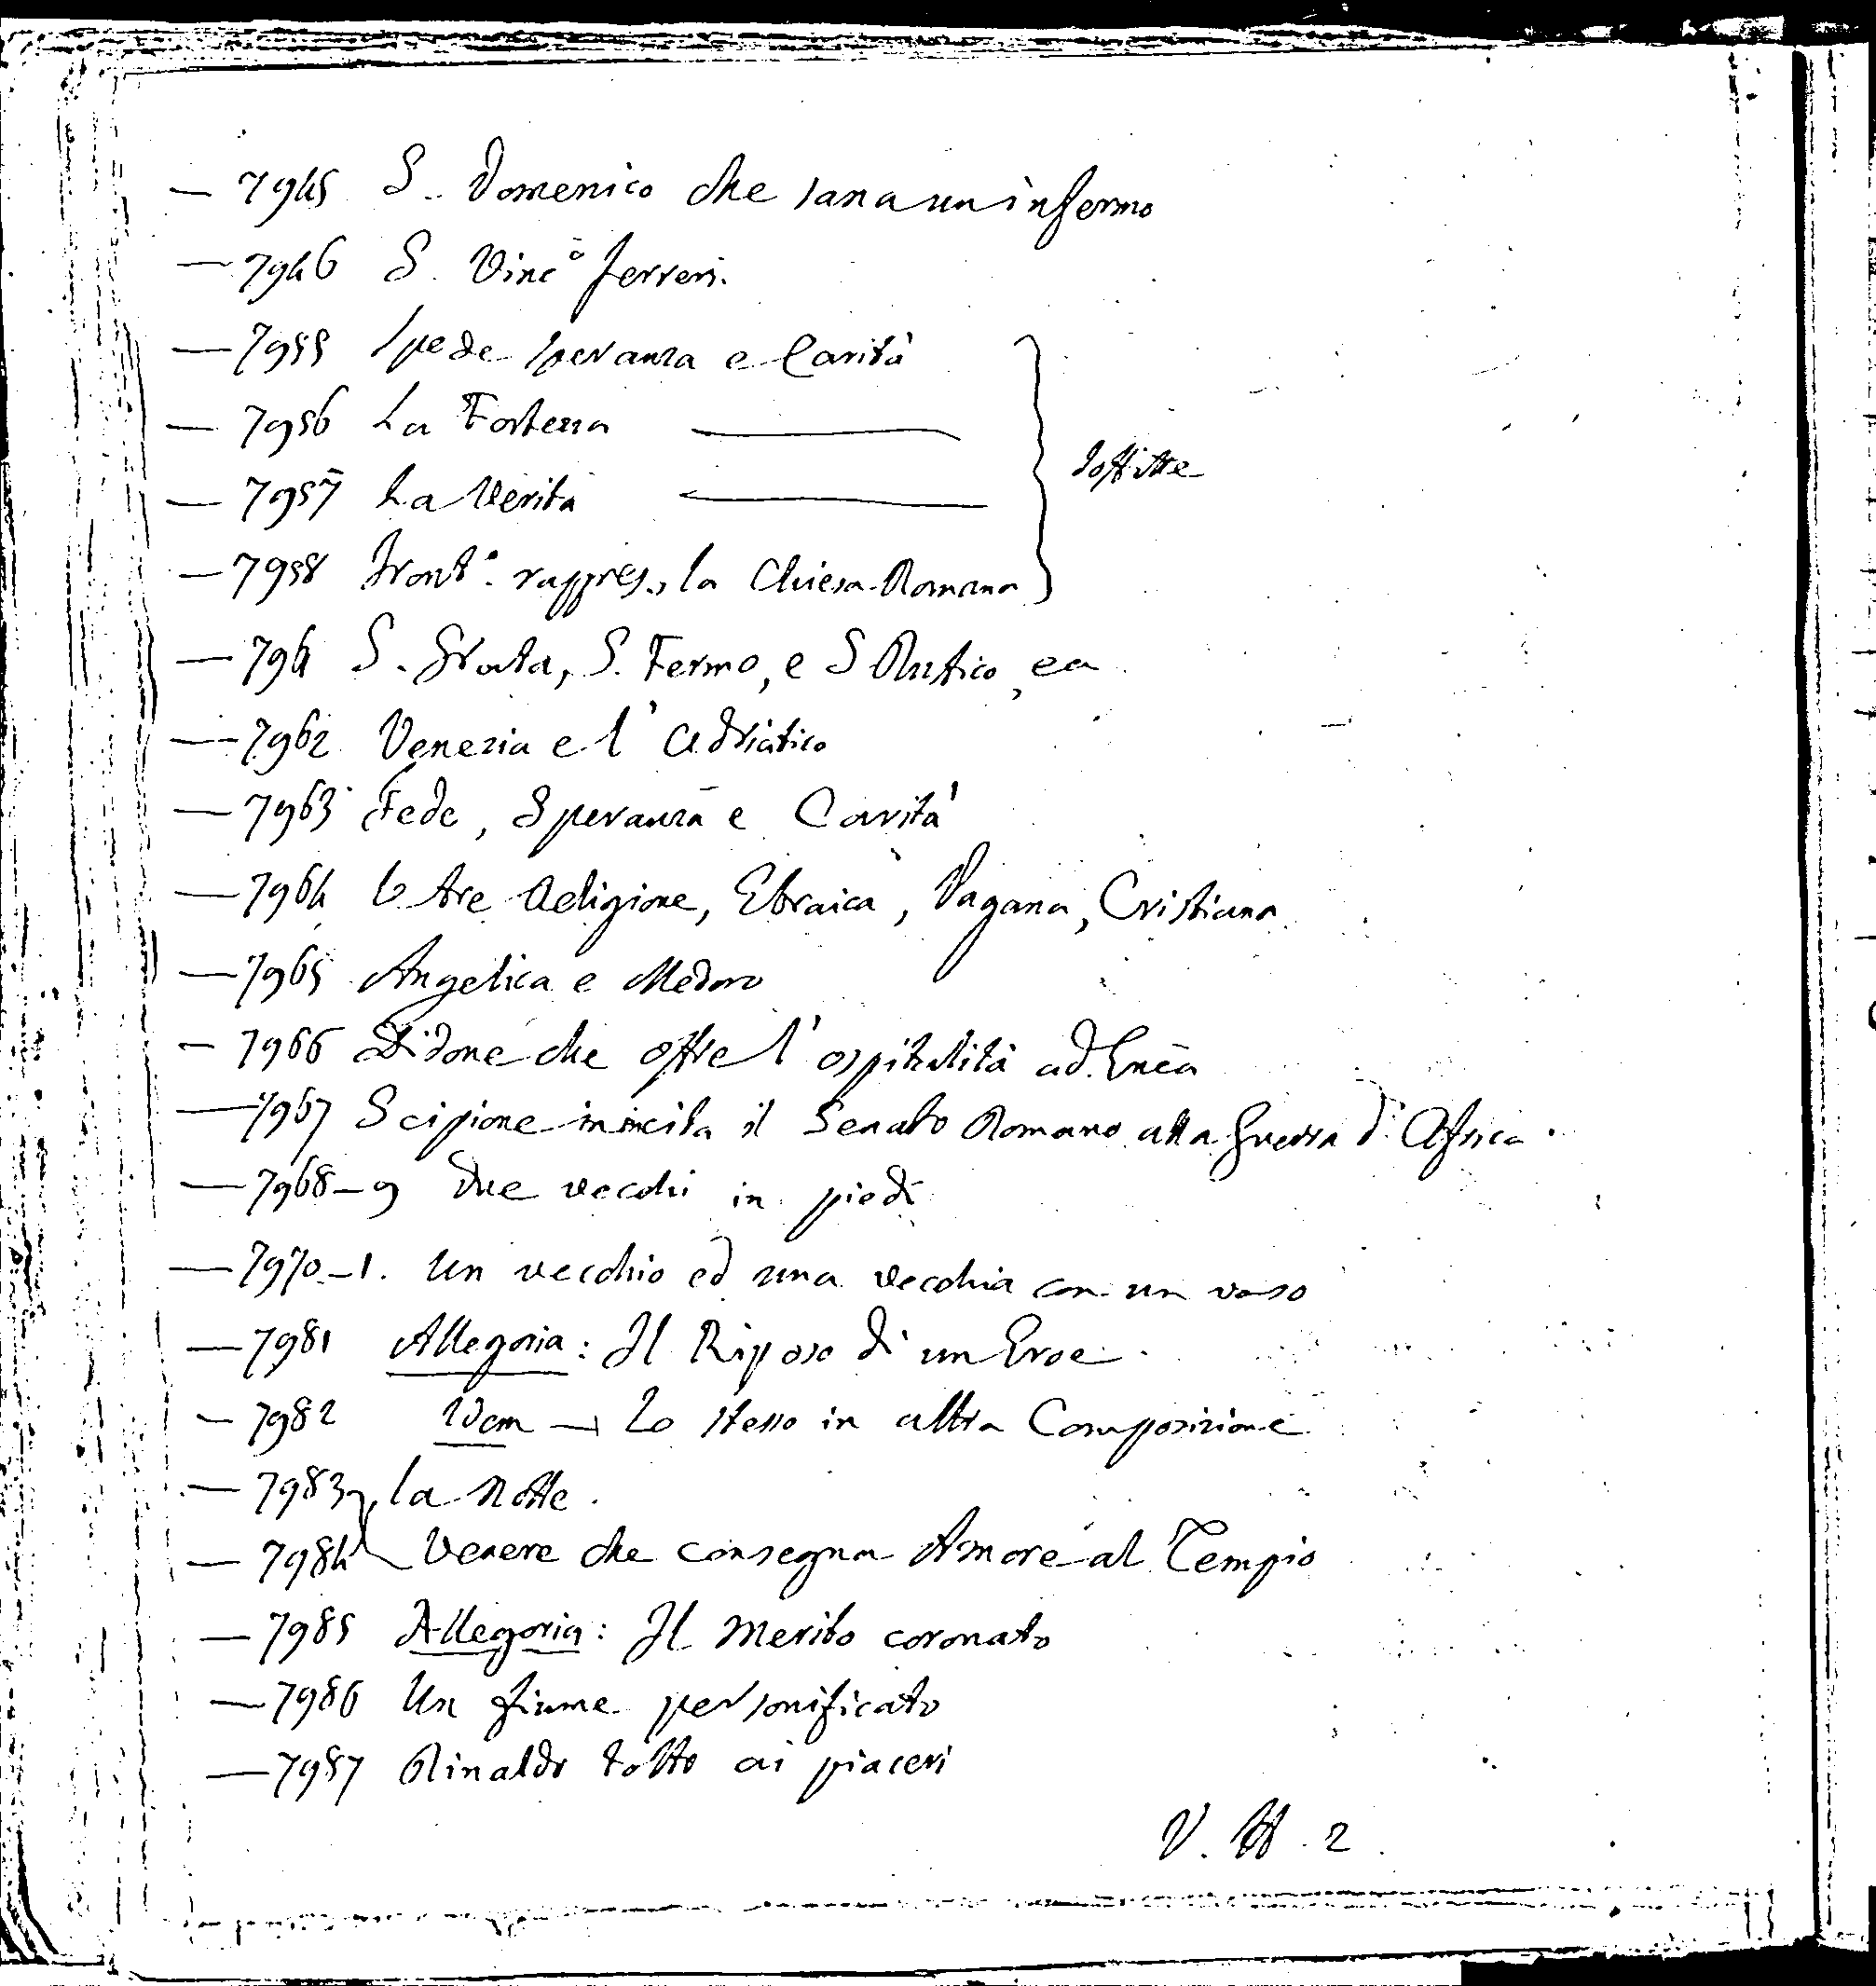 — 7945 S. Domenico che sana un infermo
— 7946 S. Vinc.º Ferreri.
— 7955 Spede Speranza e Carità
— 7956 La Fortezza ———
— 7957 La Verità ———
Soffitte
— 7958 Front.º rappres., la Chiesa Romana
— 796 S. Grata, S. Fermo, e S Rustico, ea
— 7962 Venezia e l'Adriatico
— 7963 Fede, Speranza e Carità
— 7964 Le tre Religione, Ebraica, Pagana, Cristiana
— 7965 Angelica e Medoro
— 7966 Didone che offre l'ospitalità ad Enea
— 7967 Scipione inincita il Senato Romano alla Guerra d'Africa.
— 7968–9 Due vecchi in piedi
— 7970–1. Un vecchio ed una vecchia con un vaso
— 7981 Allegoria: Il Riposo di un Eroe.
— 7982 Idem — Lo stesso in altra Composizione
— 7983 la Notte.
— 7984 Venere che consegna Amore al Tempio
— 7985 Allegoria: Il Merito coronato
— 7986 Un fiume personificato
— 7987 Rinaldo tolto ai piaceri
V. 2